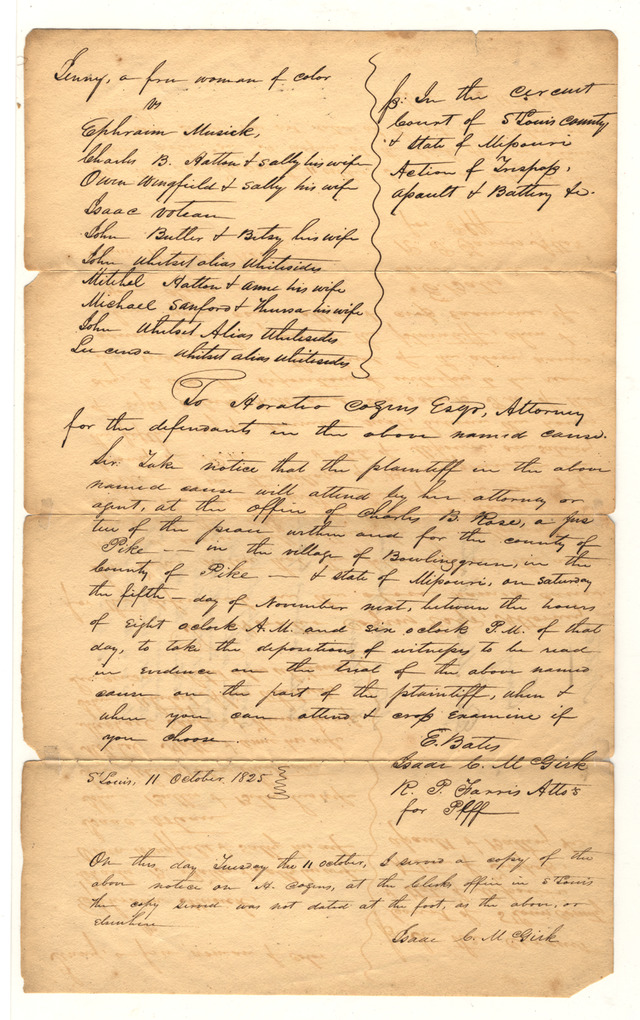 Tenny, a free woman of color
vs
Ephraim Musick,
Charles B. Hatton & Sally his wife
Owen Wingfield & Sally his wife
Isaac Voteau
John Butler & Betsy his wife
John Whitset alias Whitesides
Mitchel Hatton & Anne his wife
Michael Sanford & Thursa his wife
John Whitset Alias Whitesides
Lucinda Whitset alias Whitesides
In the circuit
Court of St Louis county
& State of Missouri
Action of Trespass,
assault & Battery &c.
To Horatio Cozens Esqr, Attorney
for the defendants in the above named cause.
Sir. Take notice that the plaintiff in the above
named cause will attend by her attorney or
agent, at the office of Charles B. Rose, a jus
tice of the peace within and for the county of
Pike — in the village of Bowlinggreen, in the
County of Pike — & state of Missouri, on Saturday
the fifth — day of November next, between the hours
of Eight oclock A.M. and six oclock P.M. of that
day, to take the depositions of witnesses to be read
in evidence on the trial of the above named
cause on the part of the plaintiff, when &
where you can attend & cross examine if
you choose.
E. Bates
Isaac C. McGirk
R. P. Farris Attos
for Plff
St Louis, 11 October. 1825
On this day, Tuesday the 11 october, I served a copy of the
above notice on H. Cozens, at the Clerks office in St Louis
the copy served was not dated at the foot, as the above, or
elsewhere
Isaac C. McGirk